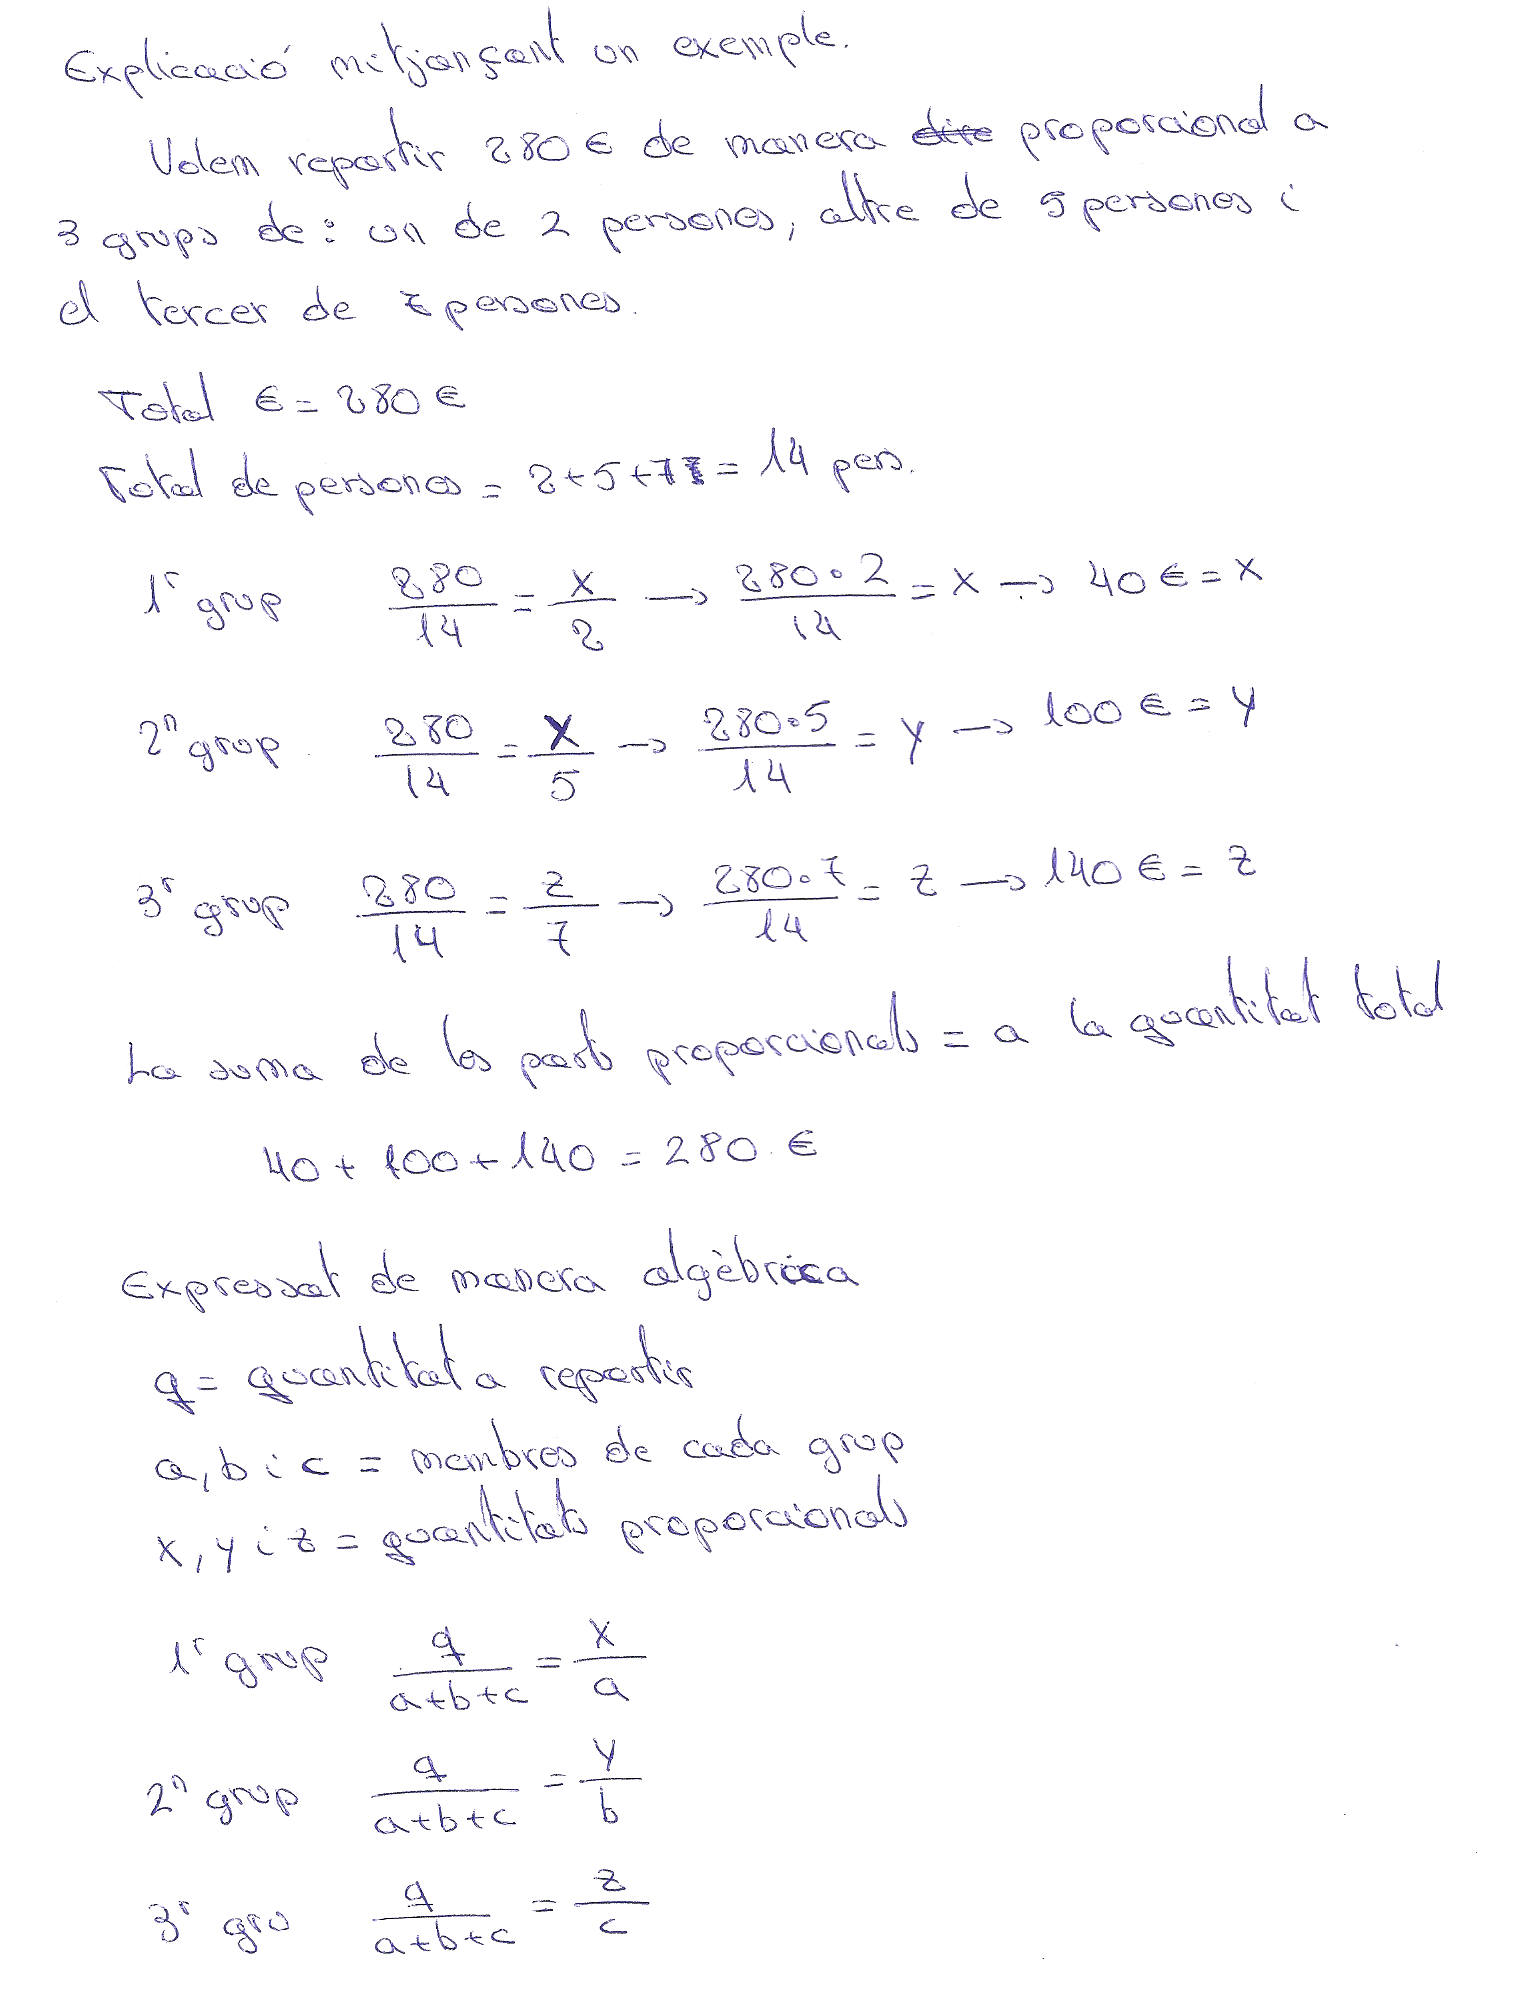 Explicació mitjançant un exemple.
Volem repartir 280 € de manera dire proporcional a
3 grups de: un de 2 persones, altre de 5 persones i
el tercer de 7 persones.
Total € = 280 €
Total de persones = 2+5+7 = 14 pers.
1r grup 280/14 = x/2 → 280·2/14 = x → 40 € = x
2n grup 280/14 = x/5 → 280·5/14 = y → 100 € = y
3r grup 280/14 = z/7 → 280·7/14 = z → 140 € = z
La suma de les parts proporcionals = a la quantitat total
40 + 100 + 140 = 280 €
Expressat de manera algèbrica
q = quantitat a repartir
a, b i c = membres de cada grup
x, y i z = quantitats proporcionals
1r grup q/a+b+c = x/a
2n grup q/a+b+c = y/b
3r gru q/a+b+c = z/c